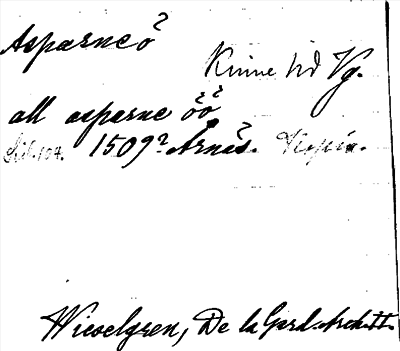 Aspærneö
Kinne hd Vg.
all aspærne öö
Sid. 104. 1509? Årnäs. Kopia.
Wieselgren, De la Gard. Arch. II.